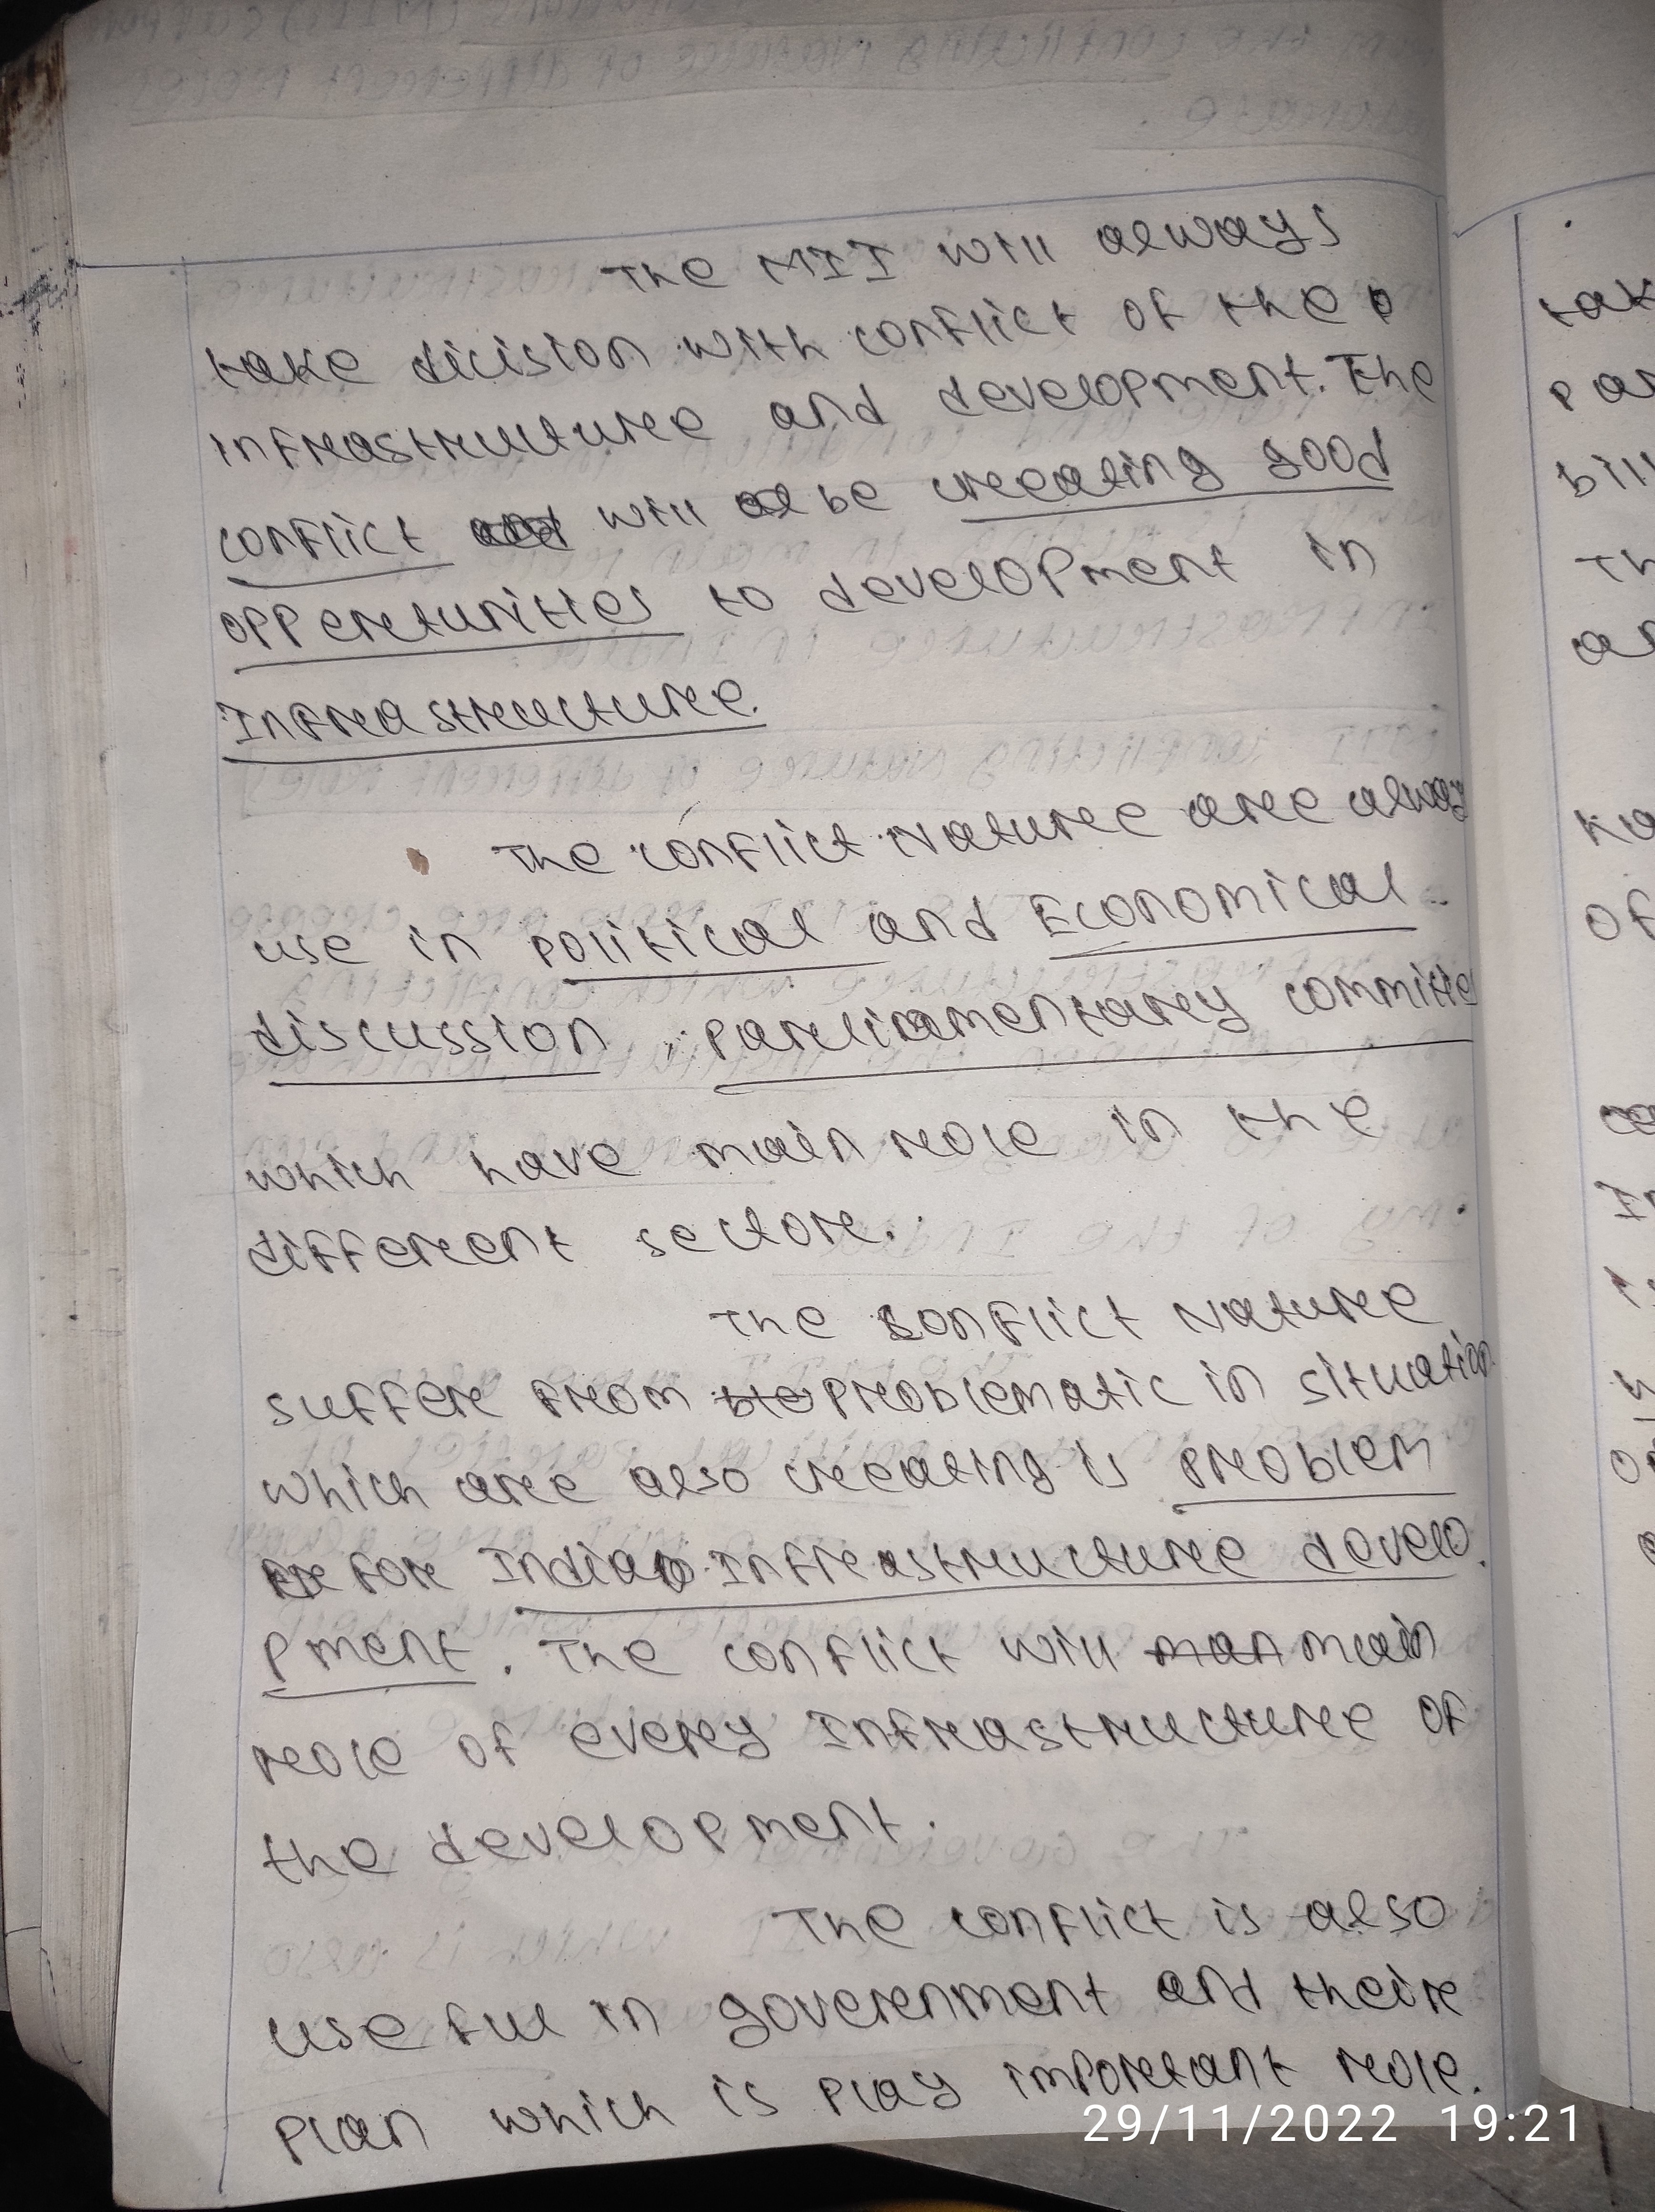 The MII will always
take dicision with conflict of the
infrastructure and development. The
conflict will be creating good
opperturities to development in
Infrastructure.
The conflict Nature are alway
use in political and Economical
discussion, parliamentary committe
which have main role in the
different sector.
The conflict Nature
suffer from problematic in situation
which are also creating is problem
for Indian Infrastructure develo
pment. The conflict will main
role of every Infrastructure of
the development.
The conflict is also
useful in government and their
plan which is play important role.
29/11/2022 19:21
tak
par
bill
Th
an
ka
of
In